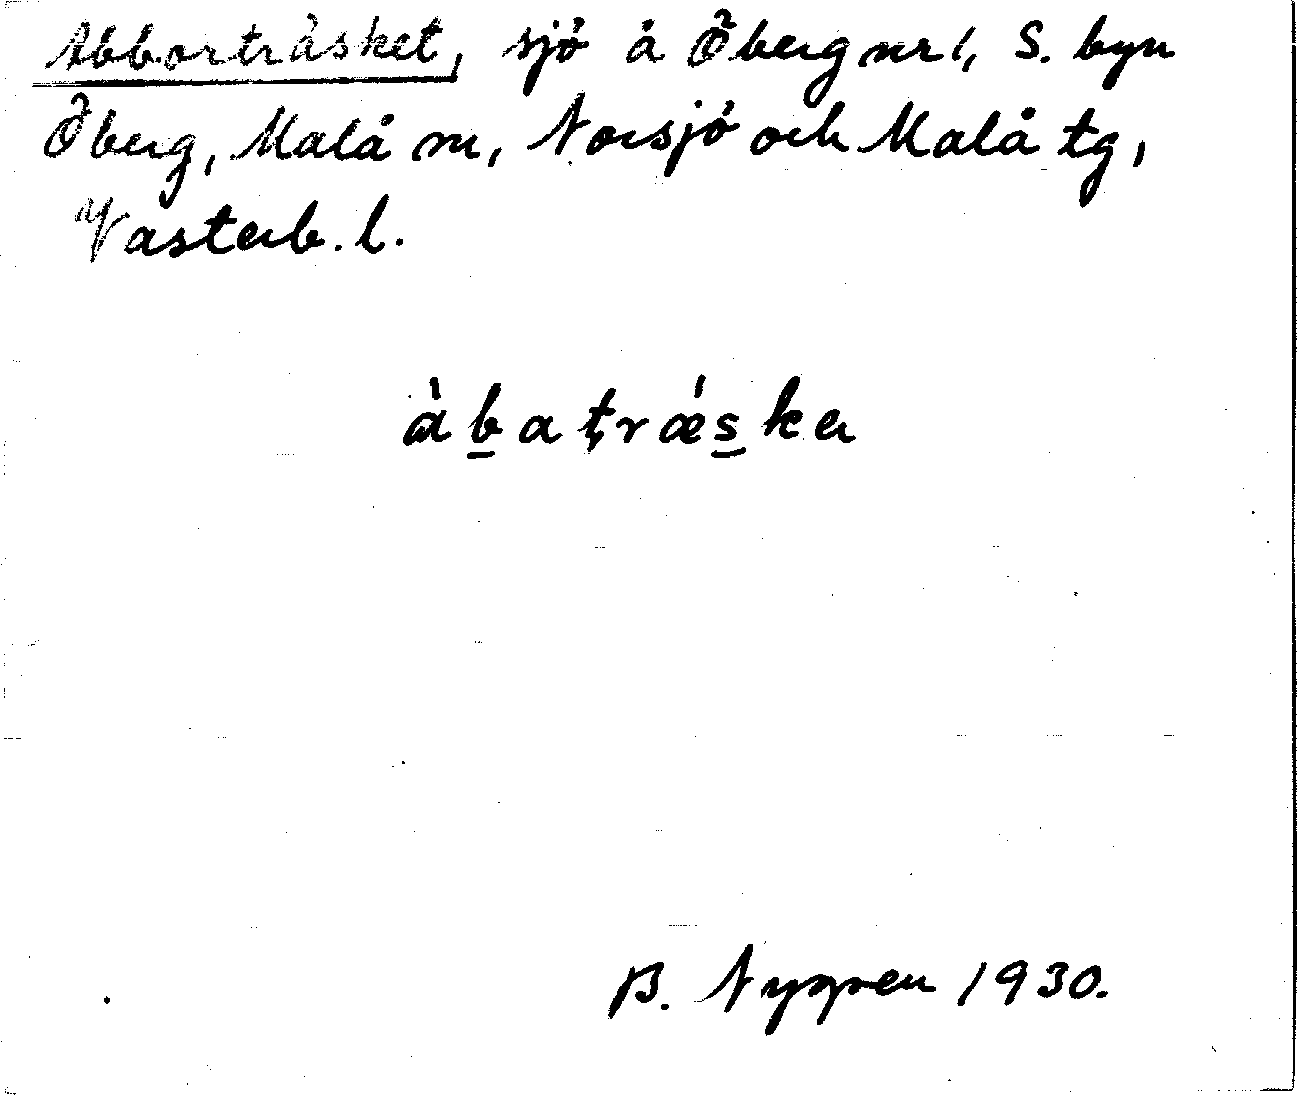 Abborträsket, sjö å Öberg nr 1, S. byn
Öberg, Malå sn, Norsjö och Malå tg,
Västerb. l.
àb̲aţrǽs̲ka
B. Nygren 1930.